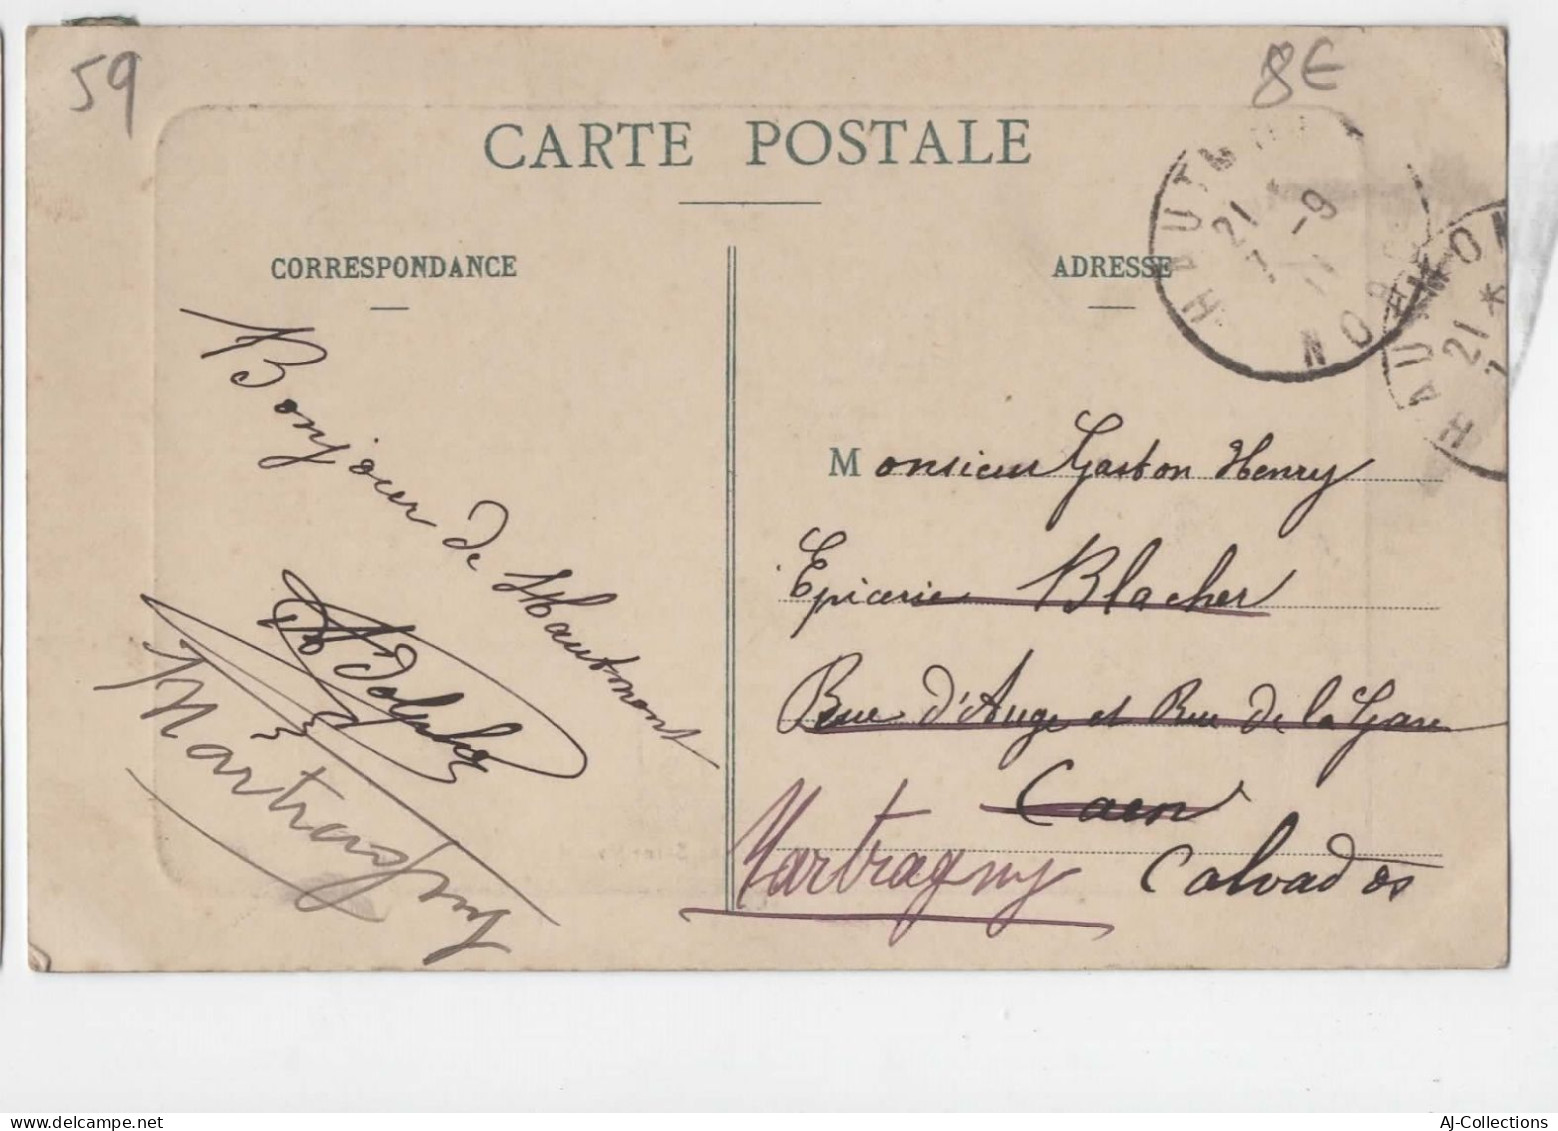 59
8€
CARTE POSTALE
CORRESPONDANCE
ADRESSE
HAUTMONT
21
7 -9
11
NORD
HAUTMON
21 *
7
Bonjour de Hautmont
Adolphe
Martragny
Monsieur Gaston Henry
Epicerie Blacher
Rue d'Auge et Rue de la Gare
Caen
Martragny Calvados
AJ-Collections